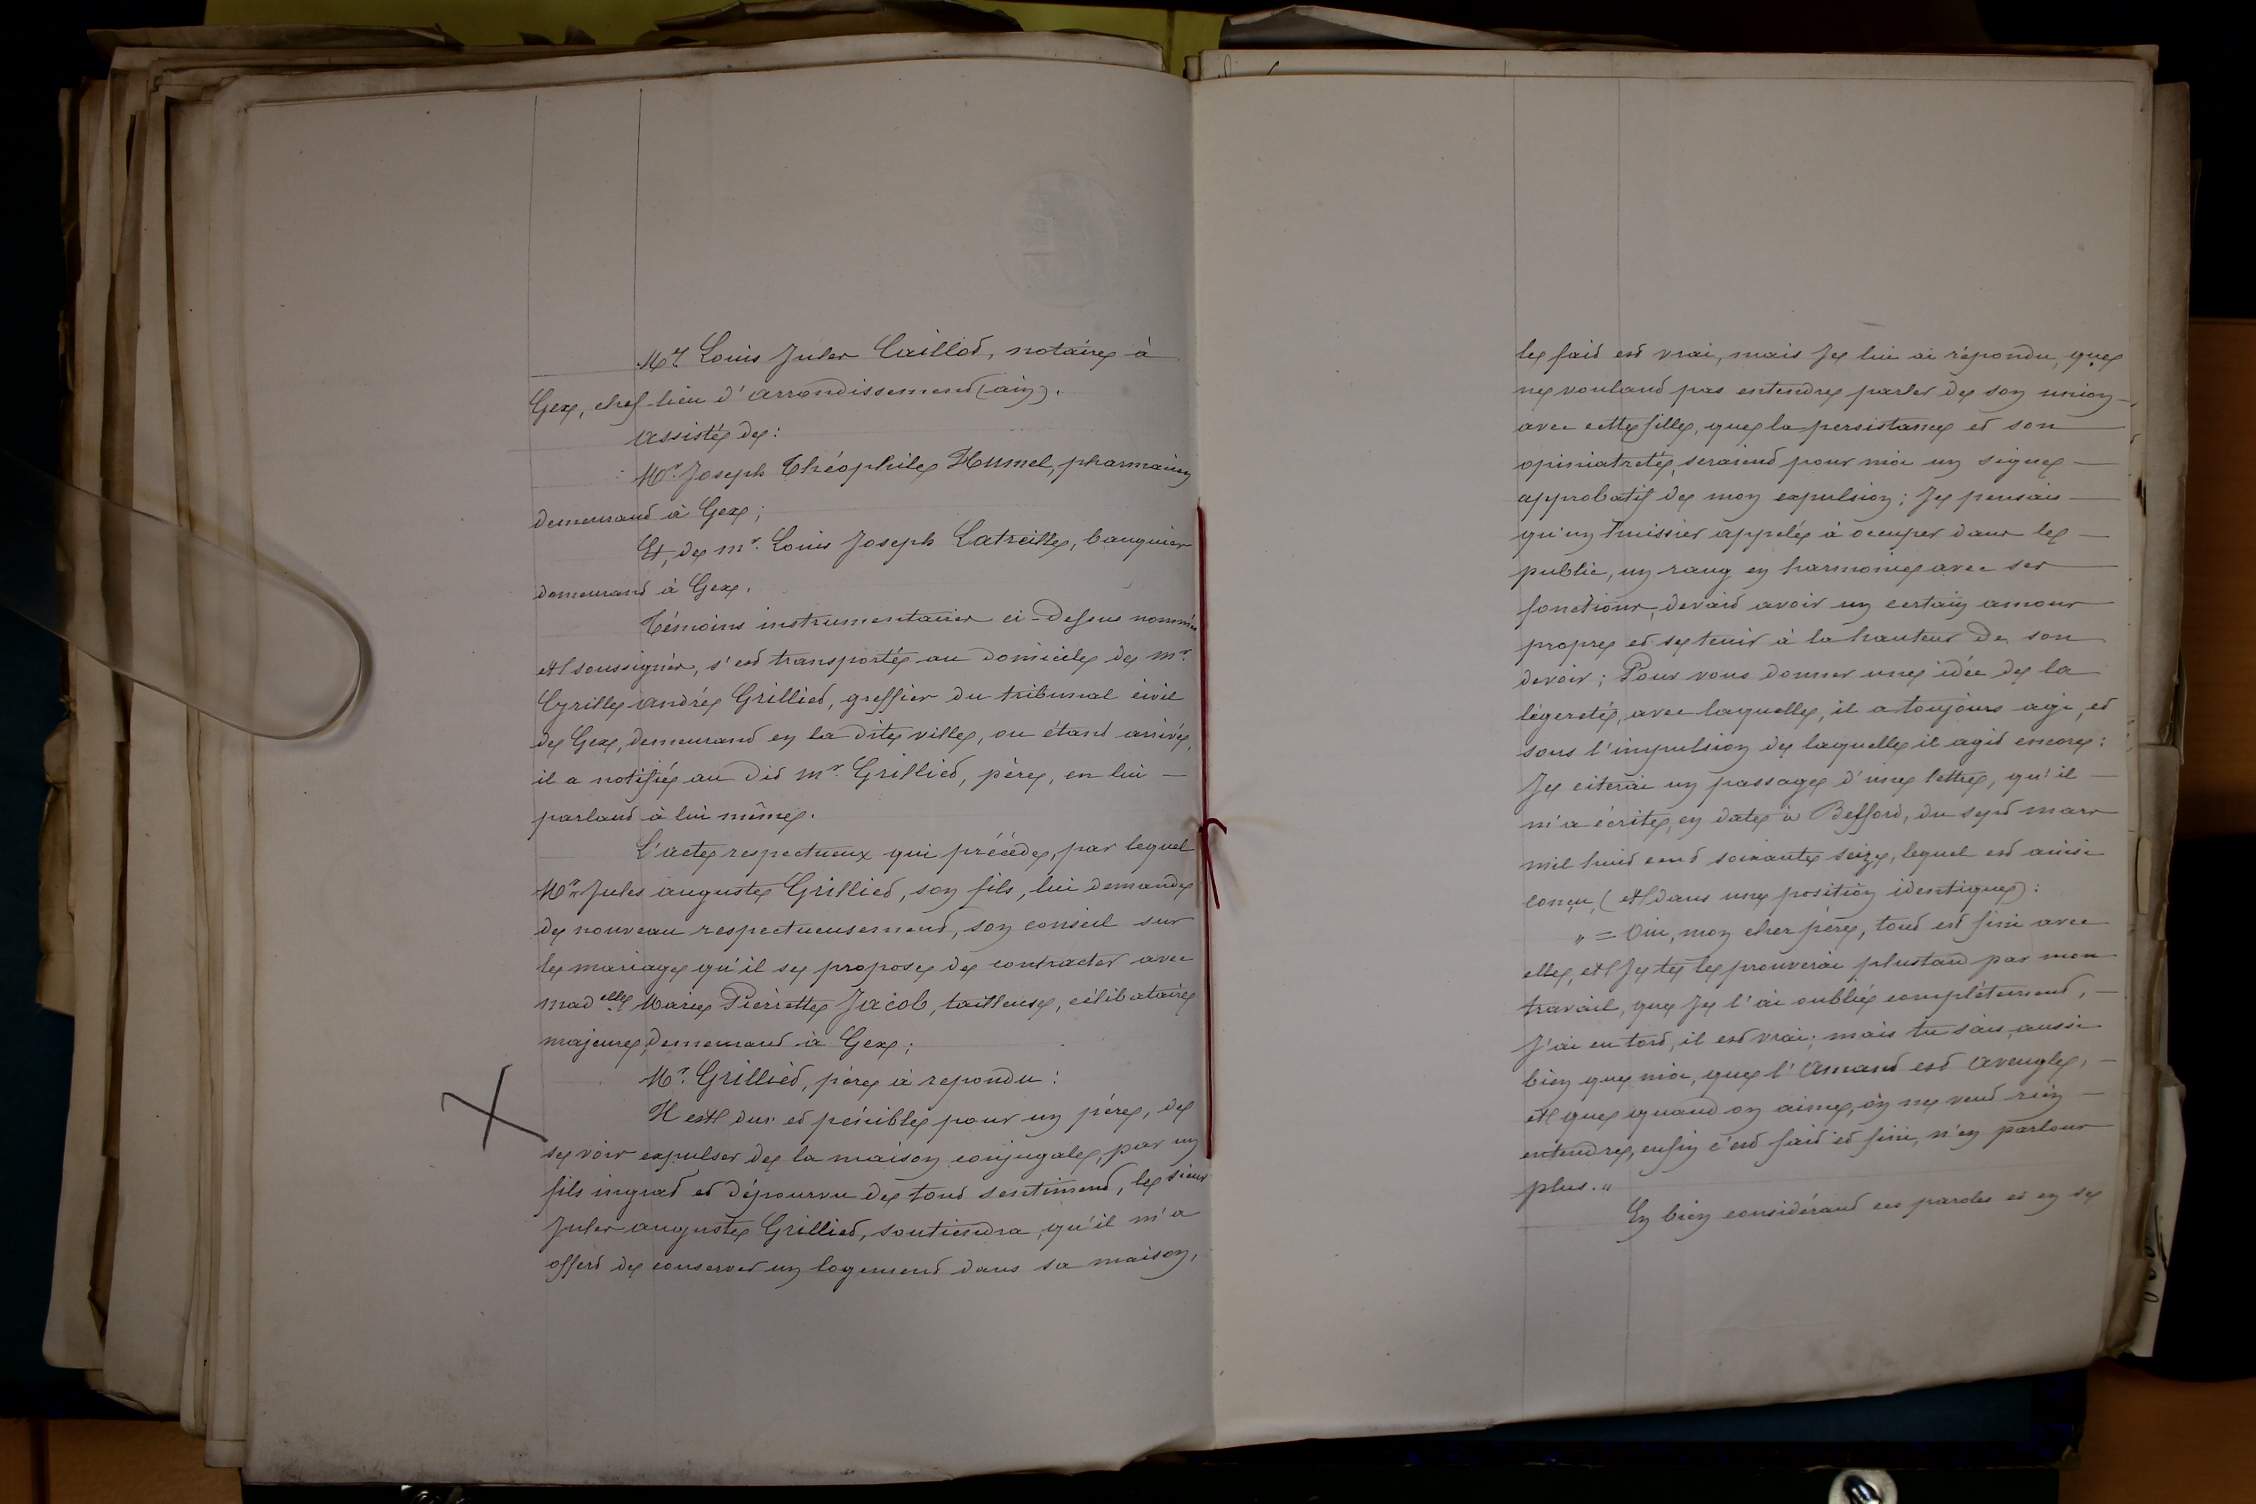 Me Louis Jules Caillod, notaire à
Gex, chef lieu d'arrondissement (ain).
Assisté de :
Mr. Joseph Théophile Humel, pharmacien
demeurant à Gex ;
Et, de mr. Louis Joseph Latreille, banquier
demeurant à Gex.
Témoins instrumentaires ci-dessus nommés
et soussignés, s'est transporté au domicile de mr.
Cyrille André Grillied, greffier du tribunal civil
de Gex, demeurant en la dite ville, ou étant arrivé,
il a notifié au dit mr. Grillied, père, en lui —
parlant à lui même.
L'acte respectueux qui précède, par lequel
Mr. Jules auguste Grillied, son fils, lui demande
de nouveau respectueusement, son conseil sur
le mariage qu'il se propose de contracter avec
madelle Marie Pierrette Jacob, tailleuse, célibataire
majeure, demeurant à Gex ;
Mr. Grillied, père à repondu :
Il est dur et pénible pour un père, de
se voir expulser de la maison conjugale, par un
fils ingrat et dépourvu de tout sentiment, le sieur
Jules auguste Grillied, soutiendra, qu'il m'a
offert de conserver un logement dans sa maison,
le fait est vrai, mais Je lui ai répondu, que
ne voulant pas entendre parler de son union —
avec cette fille, que la persistance et son —
opiniatreté, seraient pour moi un signe —
approbatif de mon expulsion ; Je pensais —
qu'un huissier appelé à occuper dans le —
public, un rang en harmonie avec ses —
fonctions, devait avoir un certain amour
propre et se tenir à la hauteur de son
devoir ; Pour vous donner une idée de la
légereté, avec laquelle, il a toujours agi, et
sous l'impulsion de laquelle il agit encore :
Je citerai un passage d'une lettre, qu'il —
m'a écrite, en date à Belford, du sept mars
mil huit cent soixante seize, lequel est ainsi
conçu, (et dans une position identique) :
" = Oui, mon cher père, tout est fini avec
elle, et Je te le prouverai plustard par mon
travail, que Je l'ai oublié complétement, —
J'ai eu tort, il est vrai, mais tu sais aussi
bien que moi, que l'Amant est aveugle, —
et que quand on aime, on ne veut rien —
entendre, enfin c'est fait et fini, n'en parlons
plus. "
En bien considérant ces paroles et en se